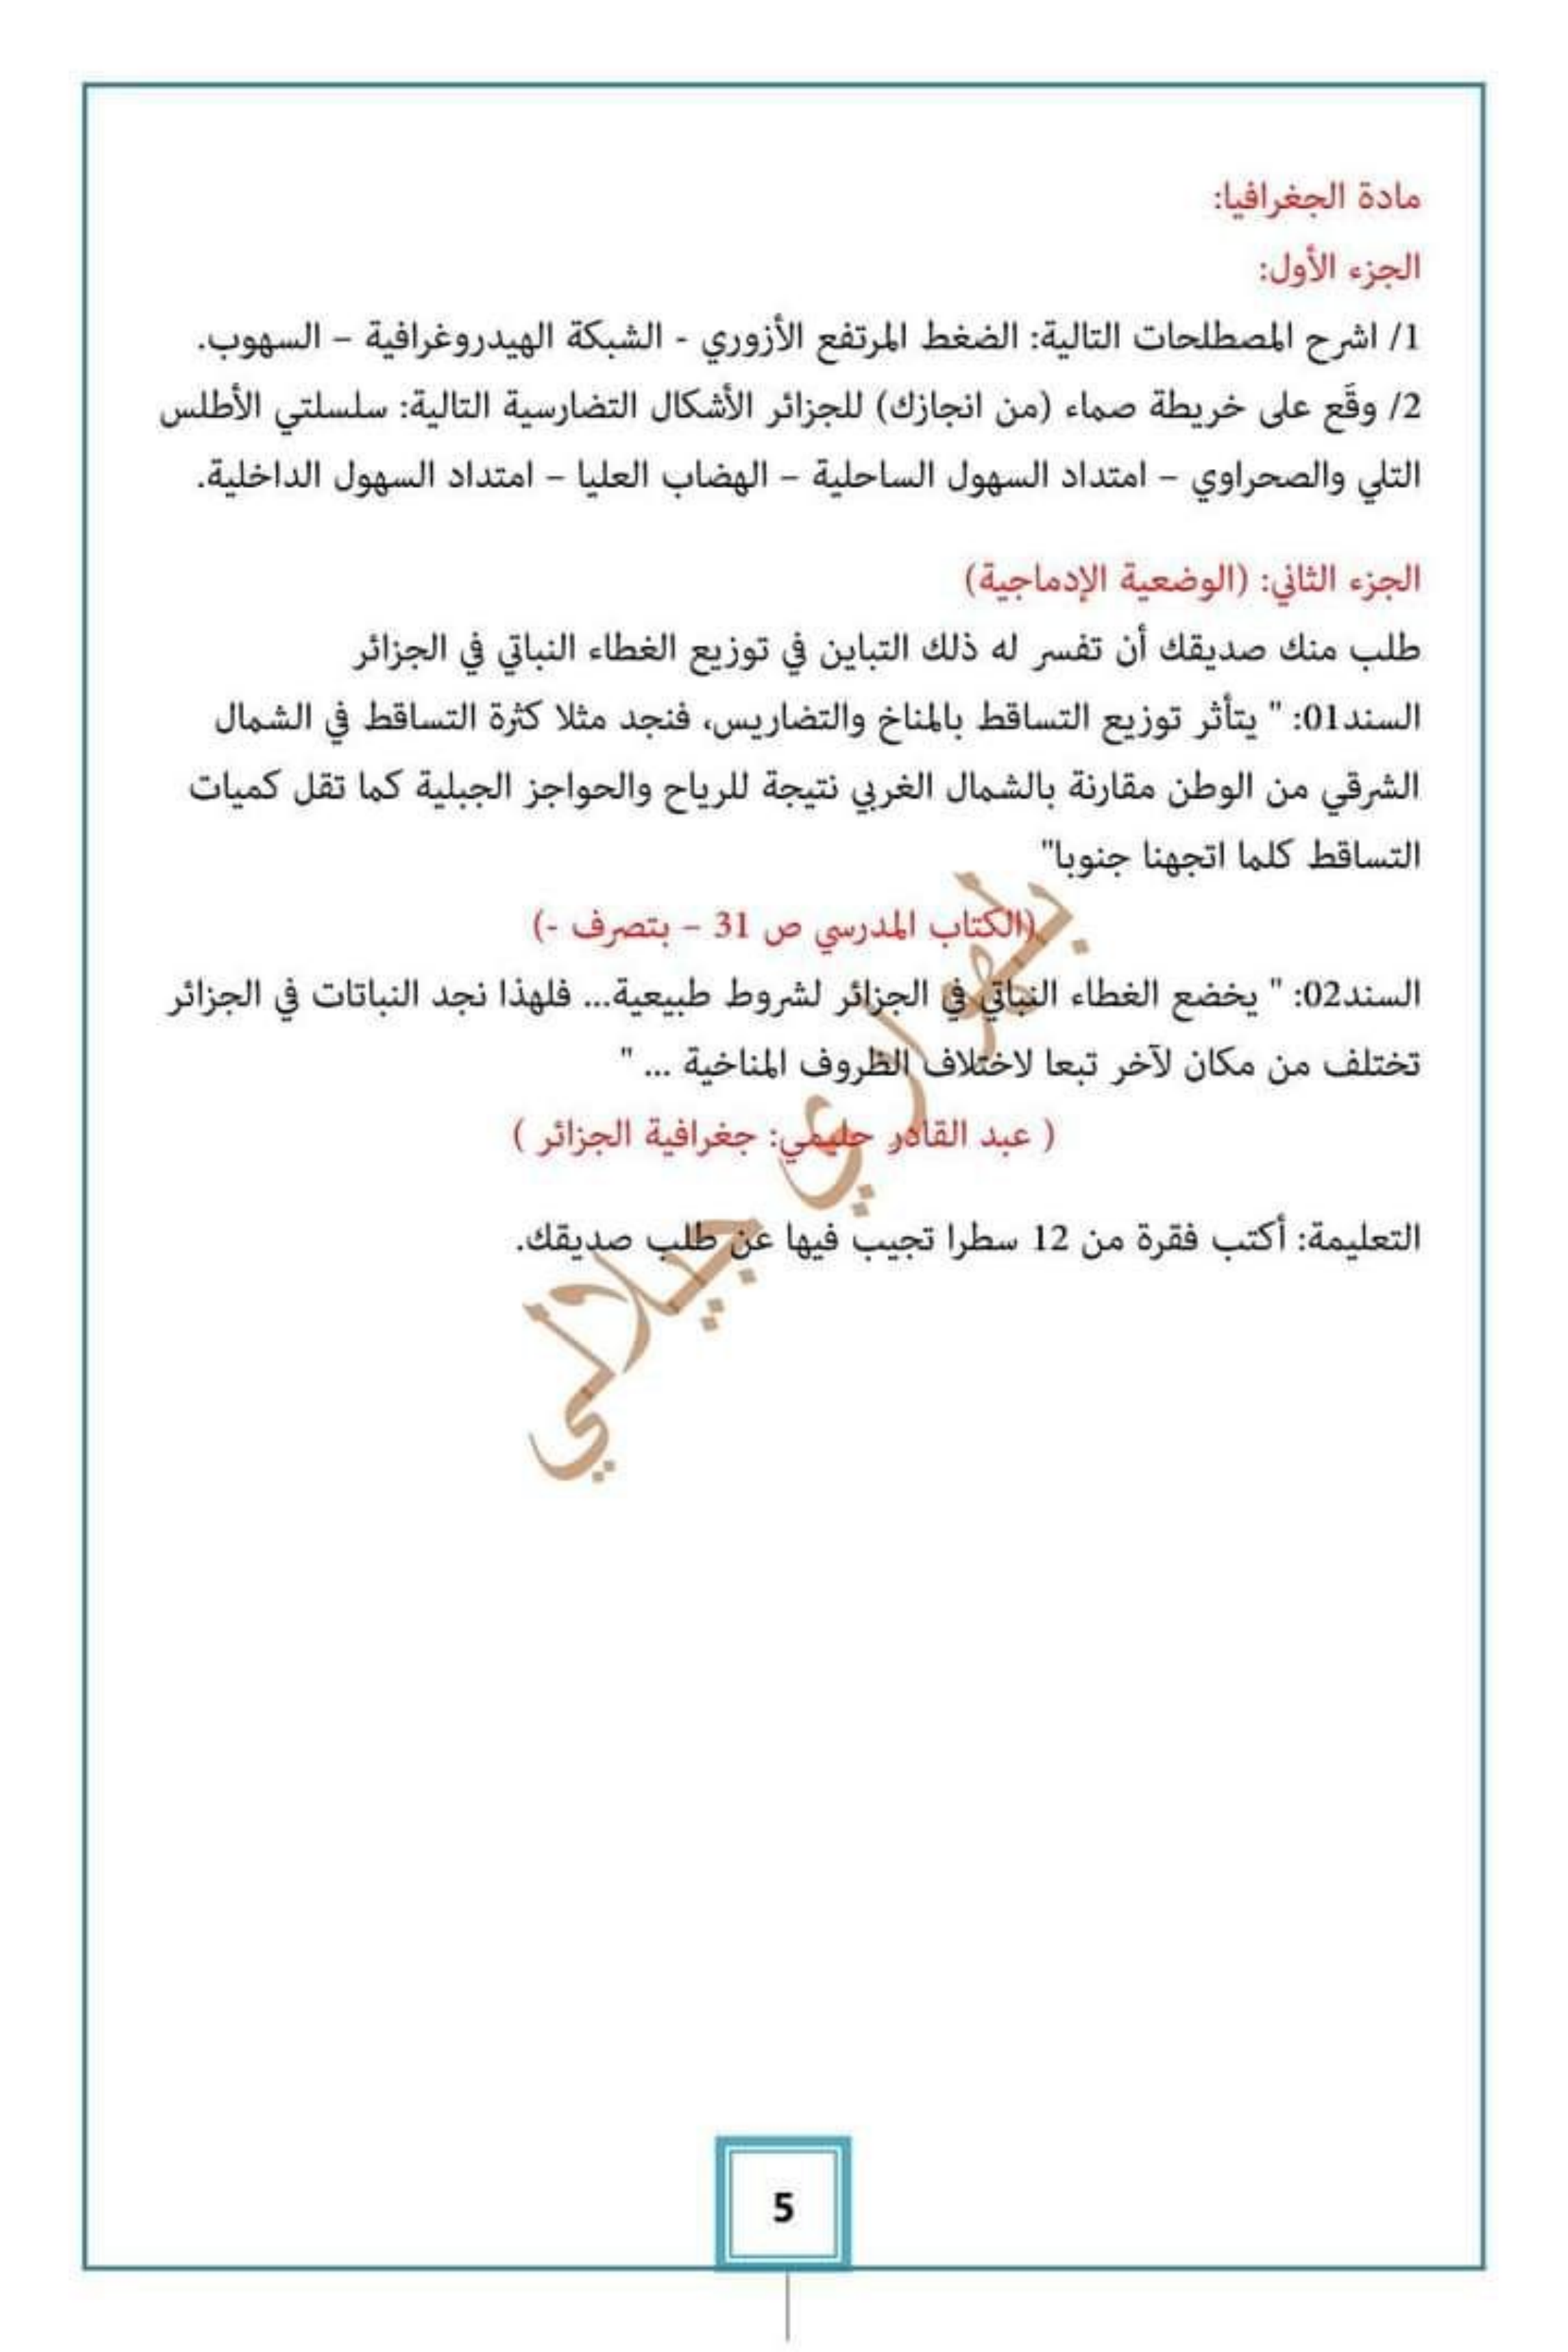 مادة الجغرافيا:
الجزء الأول:
1/ اشرح المصطلحات التالية: الضغط المرتفع الأزوري - الشبكة الهيدروغرافية – السهوب.
2/ وقَع على خريطة صماء (من انجازك) للجزائر الأشكال التضارسية التالية: سلسلتي الأطلس
التلي والصحراوي – امتداد السهول الساحلية – الهضاب العليا – امتداد السهول الداخلية.
الجزء الثاني: (الوضعية الإدماجية)
طلب منك صديقك أن تفسر له ذلك التباين في توزيع الغطاء النباتي في الجزائر
السند01: " يتأثر توزيع التساقط بالمناخ والتضاريس، فنجد مثلا كثرة التساقط في الشمال
الشرقي من الوطن مقارنة بالشمال الغربي نتيجة للرياح والحواجز الجبلية كما تقل كميات
التساقط كلما اتجهنا جنوبا"
(الكتاب المدرسي ص 31 – بتصرف -)
السند02: " يخضع الغطاء النباتي في الجزائر لشروط طبيعية... فلهذا نجد النباتات في الجزائر
تختلف من مكان لآخر تبعا لاختلاف الظروف المناخية ... "
( عبد القادر حليمي: جغرافية الجزائر )
التعليمة: أكتب فقرة من 12 سطرا تجيب فيها عن طلب صديقك.
بلهواري جيلالي
5